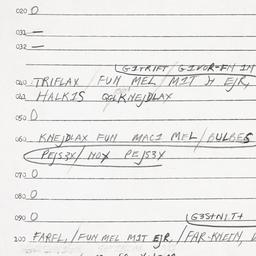 020 O
031 —
032 —
GITRIFT / GIVUR-EN IN
040 TRIFLAX / FUN MEL / MIT H EJR,
041 HALKIS KNEJDLAX
050 O
060 KNEJDLAX FUN MACI MEL / BULBES
PEJS3X / NOX PEJS3X
070 O
080 O
090 O
G3STNLT+
100 FARFL, / FUN MEL MIT EJR, / FAR-KNETN,